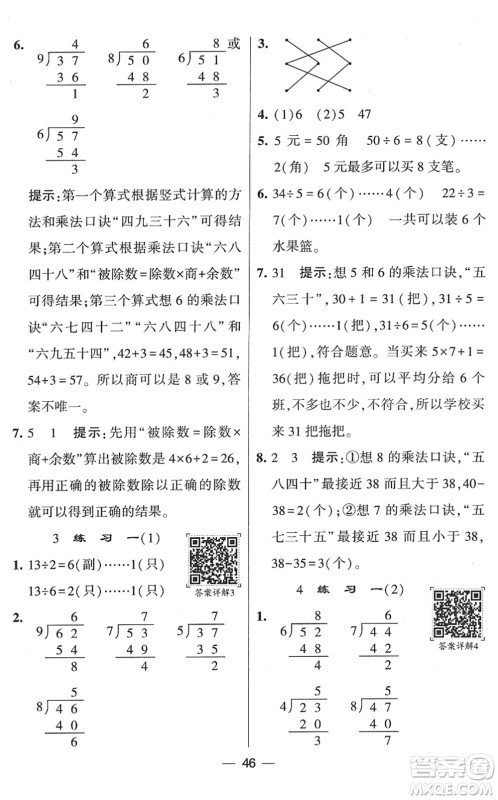 6.
4
9)37
36
1
6
8)50
48
2
8或
6)51
48
3
9
6)57
54
3
提示：第一个算式根据竖式计算的方
法和乘法口诀“四九三十六”可得到
结果；第二个算式根据乘法口诀“六八
四十八”和“被除数=商×除数+余数”
可得到结果；第三个算式想6的乘法口
诀“六七四十二”“六八四十八”和
“六九五十四”，42+3=45，48+3=51，
54+3=57。所以商可以是8或9，答
案不唯一。
7. 5 1 提示：先用“被除数=除数×
商+余数”算出被除数是4×6+2=26，
再用正确的被除数除以正确的除数就
可以得到正确的结果。
3 练习一(1)
1. 13÷2=6(副)……1(只)
13÷6=2(只)……1(只)
答案详解3
2.
6
9)62
54
8
7
7)53
49
4
7
6)45
42
3
5
8)46
40
6
3.
4. (1)6 (2)5 47
5. 5元=50角 50÷6=8(支)……
2(角) 5元最多可以买8支笔。
6. 34÷5=6(个)……4(个) 22÷3=
7(个)……1(个) 一共可以装6个
水果篮。
7. 31 提示：想5和6的乘法口诀，“五
六三十”，30+1=31(把)，31÷5=
6(把)……1(把)，31÷6=5(把)……
1(把)，符合题意。当买来5×7+1=
36(把)拖把时，可以平均分给6个
班，不符合题意，所以学校买来
31把拖把。
8. 2 3 提示：①想8的乘法口诀，“五
八四十”最接近38而且大于38，40-
38=2(个)；②想7的乘法口诀，“五
七三十五”最接近38而且小于38，
38-35=3(个)。
4 练习一(2)
1.
8
6)52
48
4
6
7)44
42
2
答案详解4
5
4)23
20
3
5
8)47
40
7
46
答案圈
MXQE.COM